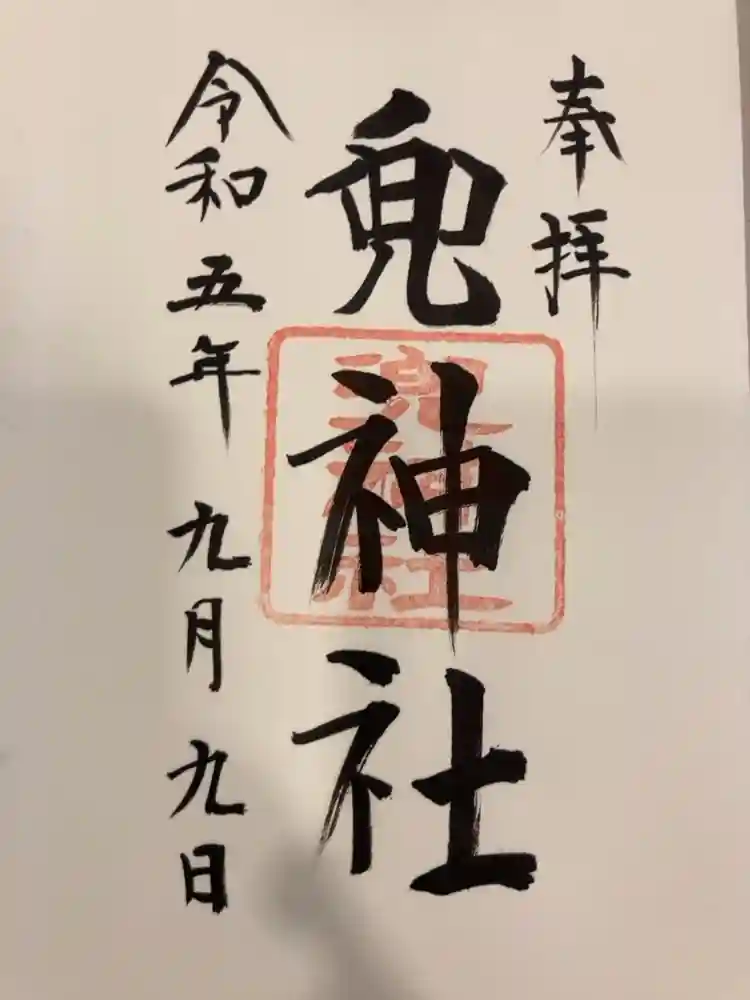 奉拝
兜神社
兜神社
令和五年九月九日